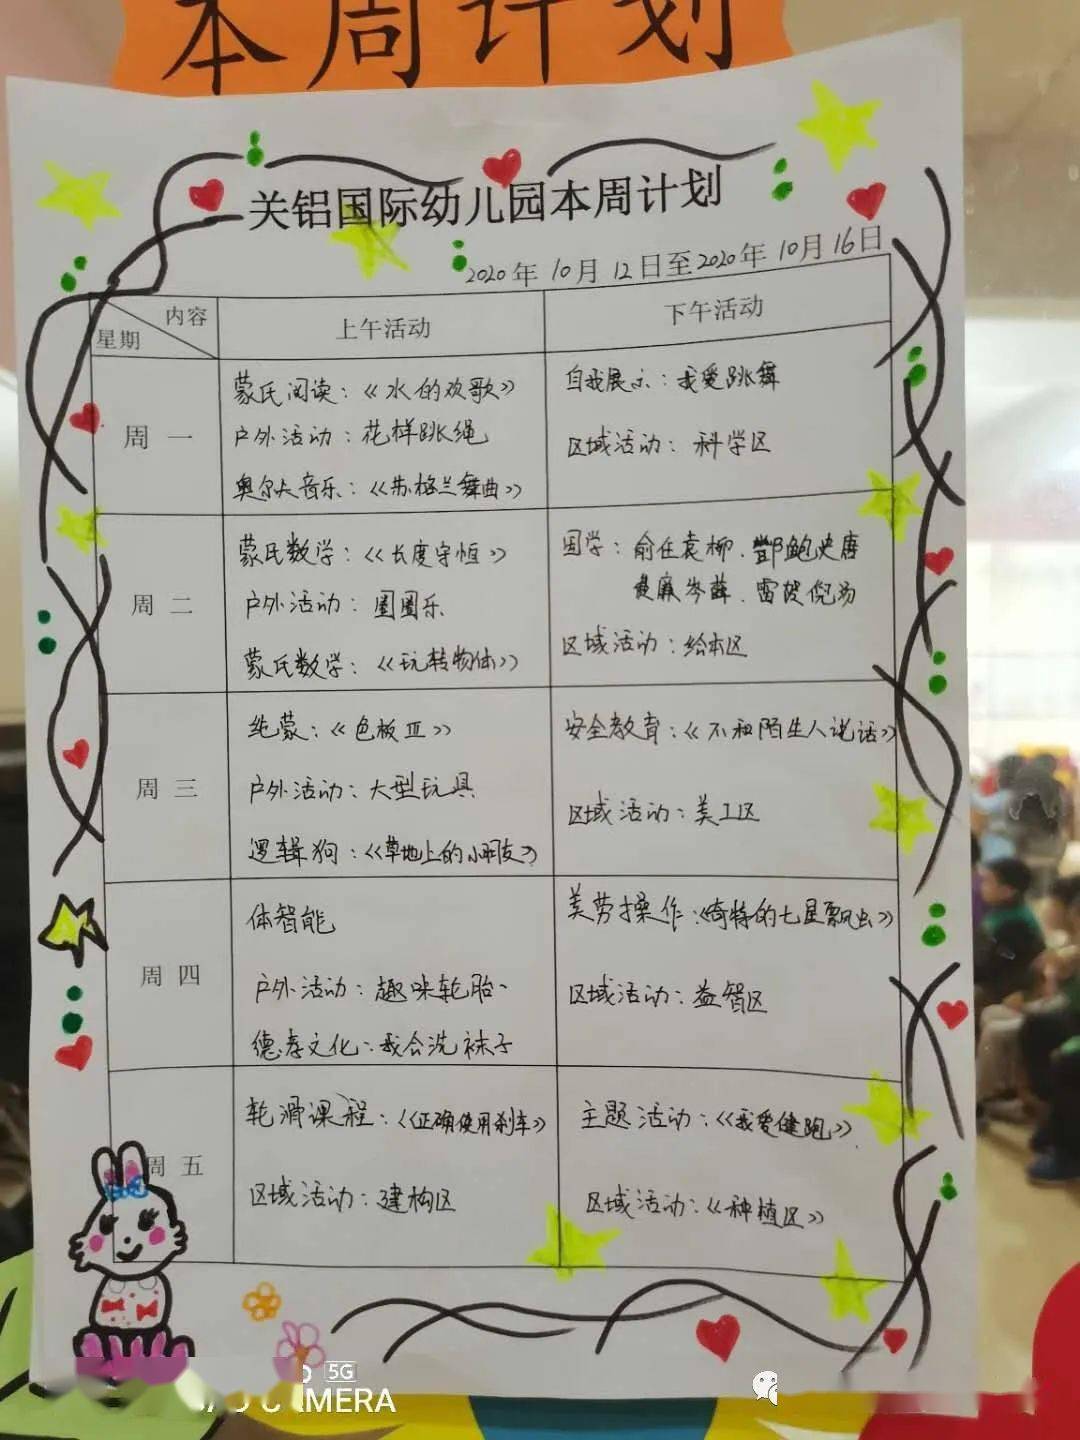 本周计划
关铝国际幼儿园本周计划
2020年10月12日至2020年10月16日
内容
星期
上午活动
下午活动
周一
蒙氏阅读：《水的欢歌》
户外活动：花样跳绳
奥尔夫音乐：《苏格兰舞曲》
自我展示：我爱跳舞
区域活动：科学区
周二
蒙氏数学：《长度守恒》
户外活动：圈圈乐
蒙氏数学：《玩转物体》
国学：俞任袁柳.酆鲍史唐
费廉岑薛.雷贺倪汤
区域活动：绘本区
周三
纯蒙：《色板Ⅲ》
户外活动：大型玩具
逻辑狗：《草地上的小朋友》
安全教育：《不和陌生人说话》
区域活动：美工区
周四
体智能
户外活动：趣味轮胎、
德孝文化：我会洗袜子
美劳操作：《奇特的七星瓢虫》
区域活动：益智区
周五
轮滑课程：《正确使用刹车》
区域活动：建构区
主题活动：《我爱健跑》.
区域活动：《种植区》
5G
CAMERA